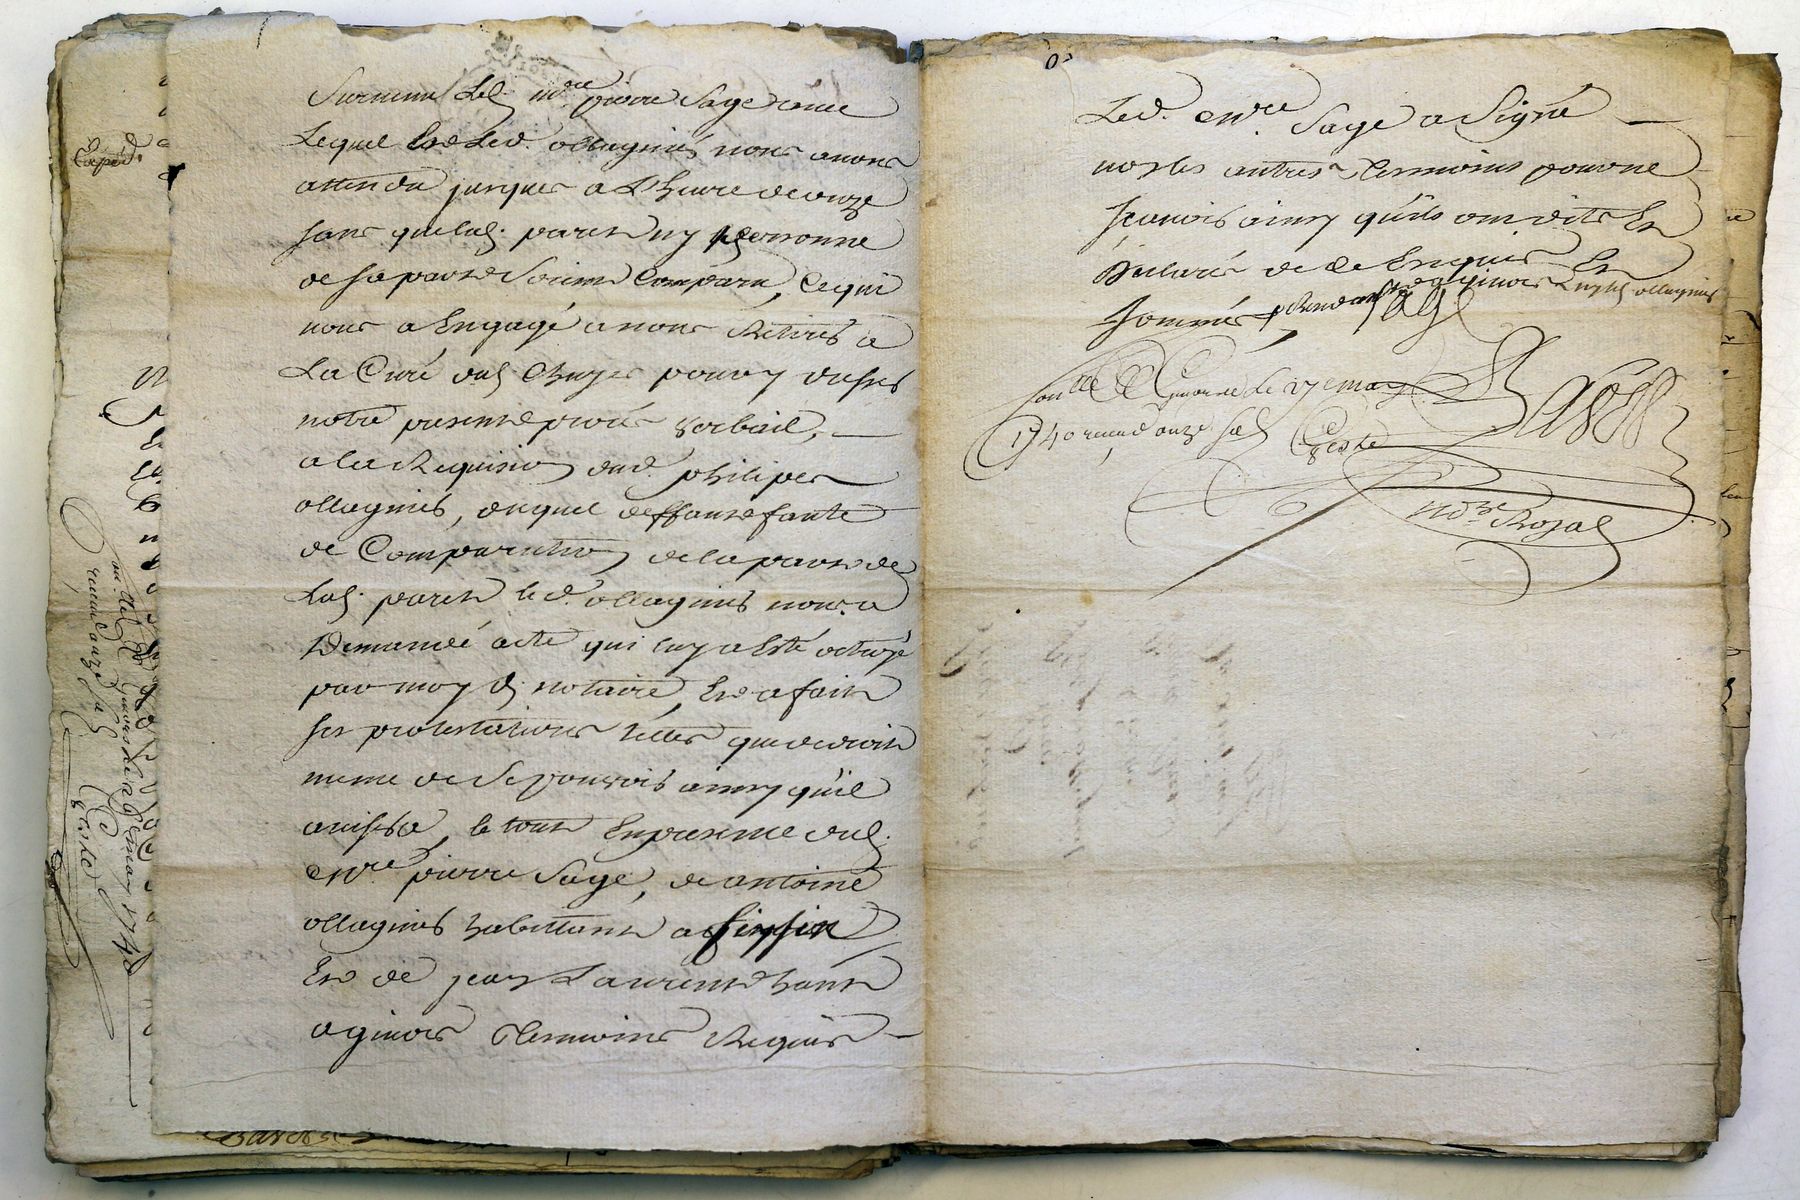 Survenu led. m.re pierre Sage cure
Lequel Et Led. ollagnies nous avons
attendu jusques a L'heure de onze
sans que lad. parent ny personne
de sa part Soient Comparu, Ce qui
nous a Engagé a nous Retirés a
La Cure dud. pour y dresses
notre present procés verbail,
a la Requision dud. philipes
ollagnies, duquel deffaut et faute
de Comparution de la part de
Lad. parent led. ollagnies nous a
Demandé acte qui luy a Esté octroyé
par moy d. notaire, Et a fait
ses protestations telles que de droit
meme de Se pourvois ainsy quil
avisera, le tout En presence dud.
m.re pierre Sage, de antoine
ollagnies habittant a
Et de jean Laurent habitt
a ginois Temoins Requis
Led. m.re Sage a Signé
non les autres Temoins pour ne
sçavois ainsy quils ont dit Et
declarés de ce Enquis Et
sommés
Sage
Conlle a le 17e may
1740 recu onze sol
Coste
not.re Royal
Exped.
recu onze sol
Coste